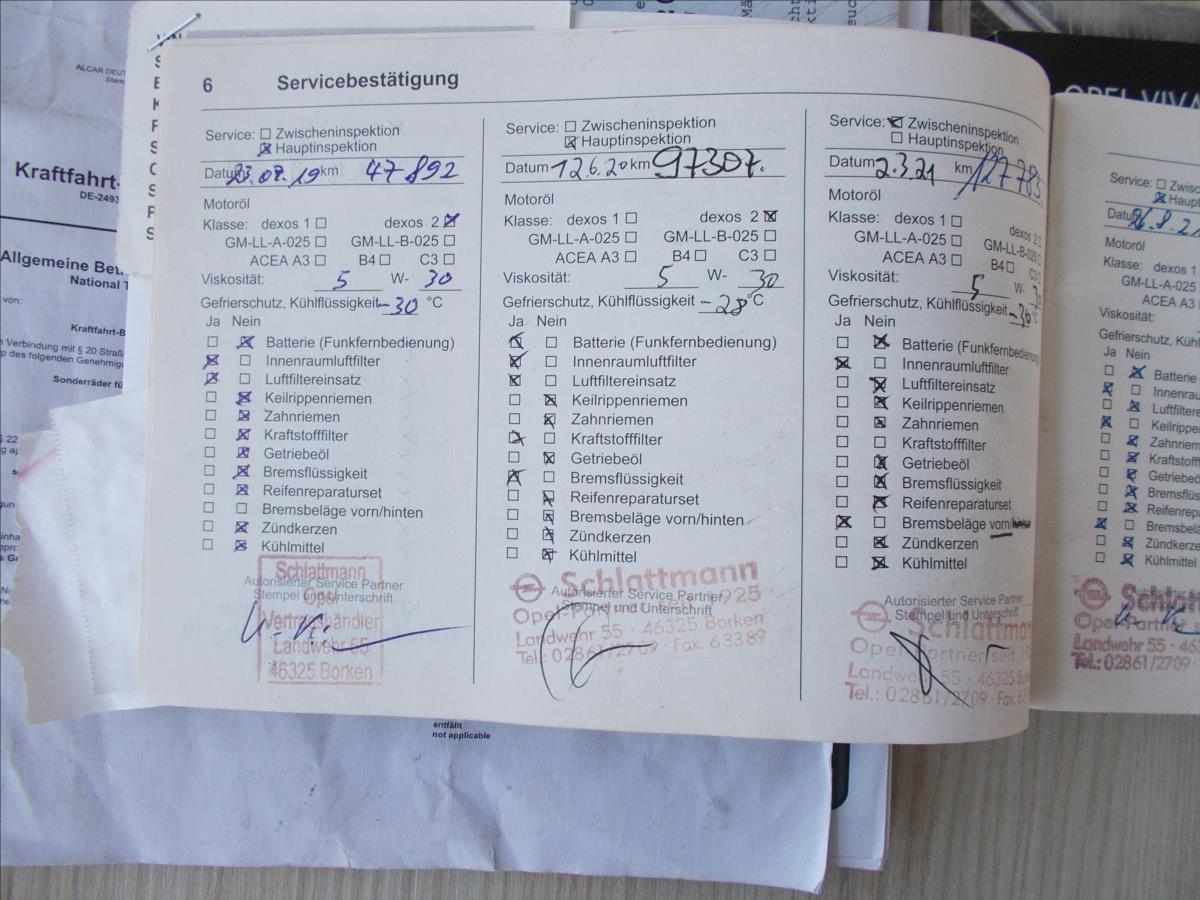 6 Servicebestätigung
Service: ☐ Zwischeninspektion
☒ Hauptinspektion
Datum 23.07.19 km 47892
Motoröl
Klasse: dexos 1 ☐ dexos 2 ☒
GM-LL-A-025 ☐ GM-LL-B-025 ☐
ACEA A3 ☐ B4 ☐ C3 ☐
Viskosität: 5 W- 30
Gefrierschutz, Kühlflüssigkeit -30 °C
Ja Nein
☐ ☒ Batterie (Funkfernbedienung)
☒ ☐ Innenraumluftfilter
☒ ☐ Luftfiltereinsatz
☐ ☒ Keilrippenriemen
☐ ☒ Zahnriemen
☐ ☒ Kraftstofffilter
☐ ☒ Getriebeöl
☐ ☒ Bremsflüssigkeit
☐ ☒ Reifenreparaturset
☐ ☐ Bremsbeläge vorn/hinten
☐ ☒ Zündkerzen
☐ ☒ Kühlmittel
Autorisierter Service Partner
Stempel und Unterschrift
Schlattmann
Opel
Vertragshändler
Landwehr 55
46325 Borken
Service: ☐ Zwischeninspektion
☒ Hauptinspektion
Datum 12.6.20 km 97307.
Motoröl
Klasse: dexos 1 ☐ dexos 2 ☒
GM-LL-A-025 ☐ GM-LL-B-025 ☐
ACEA A3 ☐ B4 ☐ C3 ☐
Viskosität: 5 W- 30
Gefrierschutz, Kühlflüssigkeit -28 °C
Ja Nein
☒ ☐ Batterie (Funkfernbedienung)
☒ ☐ Innenraumluftfilter
☒ ☐ Luftfiltereinsatz
☐ ☒ Keilrippenriemen
☐ ☒ Zahnriemen
☒ ☐ Kraftstofffilter
☐ ☒ Getriebeöl
☒ ☐ Bremsflüssigkeit
☐ ☒ Reifenreparaturset
☐ ☒ Bremsbeläge vorn/hinten
☐ ☒ Zündkerzen
☐ ☒ Kühlmittel
Autorisierter Service Partner
Stempel und Unterschrift
Schlattmann
925
Landwehr 55 · 46325 Borken
Tel.: 02861/2709 · Fax: 63389
Service: ☒ Zwischeninspektion
☐ Hauptinspektion
Datum 2.3.21 km 127783
Motoröl
Klasse: dexos 1 ☐ dexos 2 ☐
GM-LL-A-025 ☐ GM-LL-B-025 ☐
ACEA A3 ☐ B4 ☐ C3 ☐
Viskosität: 5 W-
Gefrierschutz, Kühlflüssigkeit -30 °C
Ja Nein
☐ ☒ Batterie (Funkfernbedienung
☒ ☐ Innenraumluftfilter
☐ ☒ Luftfiltereinsatz
☐ ☒ Keilrippenriemen
☐ ☒ Zahnriemen
☐ ☐ Kraftstofffilter
☐ ☒ Getriebeöl
☐ ☒ Bremsflüssigkeit
☐ ☒ Reifenreparaturset
☒ ☐ Bremsbeläge vorn/
☐ ☒ Zündkerzen
☐ ☒ Kühlmittel
Autorisierter Service Partner
Stempel und Unterschrift
Schlattmann
Landwehr 55 · 46325 Borken
Tel.: 02861/2709 · Fax: 63
Service: ☐ Zwisc
☒ Haupt
Motoröl
Klasse: dexos 1
GM-LL-A-025
ACEA A3
Viskosität:
Gefrierschutz, Kühlflüss
Ja Nein
☐ ☒ Batterie
☒ ☐ Innenrau
☐ ☒ Luftfilte
☒ ☐ Keilripp
☐ ☒ Zahnriem
☐ ☒ Kraftsto
☐ ☒ Getriebe
☐ ☒ Bremsflüs
☐ ☒ Reifenrep
☒ ☐ Bremsbel
☐ ☒ Zündkerze
☐ ☒ Kühlmittel
Schlat
Landwehr 55 · 46
Tel.: 02861/2709
OPEL VIVA
ALCAR DEUT
Kraftfahrt-
DE-2493
Allgemeine Bet
National T
von:
Kraftfahrt-B
n Verbindung mit § 20 Straß
p des folgenden Genehmig
Sonderräder fü
entfällt
not applicable